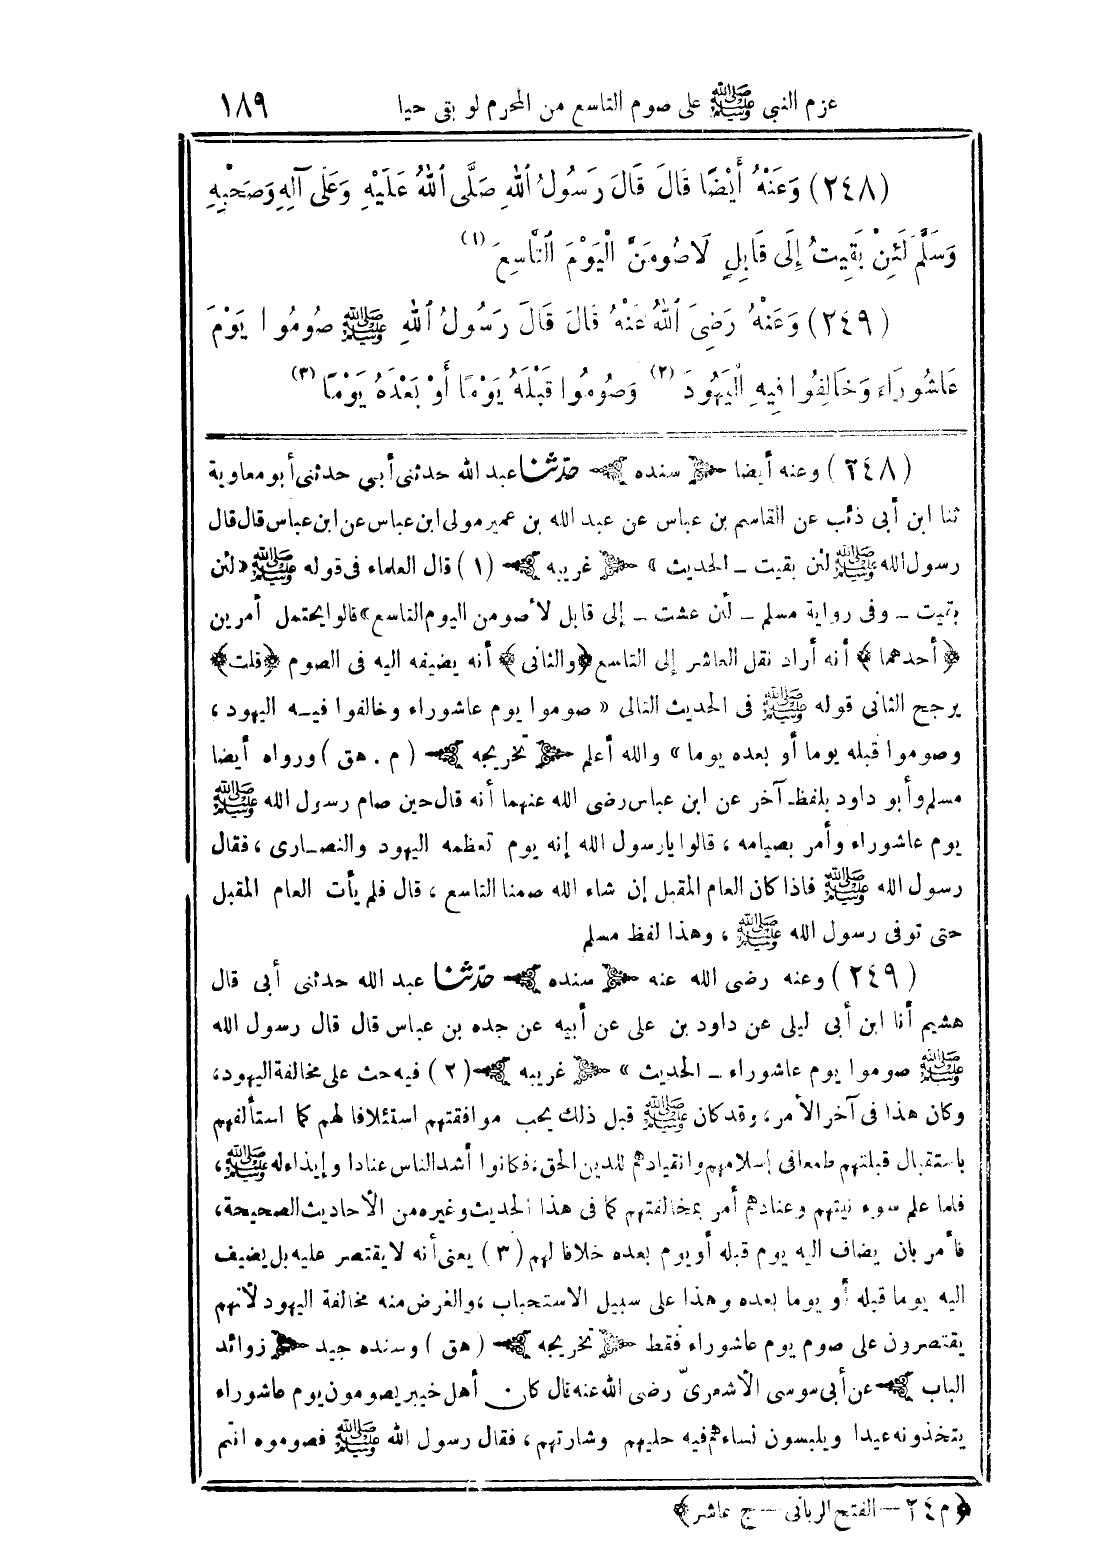 عزم النبي ﷺ على صوم التاسع من المحرم لو بقى حيا ١٨٩
(٢٤٨) وَعَنْهُ أَيْضًا قَالَ قَالَ رَسُولُ اللهِ صَلَّى اللهُ عَلَيْهِ وَعَلَى آلِهِ وَصَحْبِهِ
وَسَلَّمَ لَئِنْ بَقِيتُ إِلَى قَابِلٍ لَأَصُومَنَّ الْيَوْمَ التَّاسِعَ (١)
(٢٤٩) وَعَنْهُ رَضِىَ اللهُ عَنْهُ قَالَ قَالَ رَسُولُ اللهِ ﷺ صُومُوا يَوْمَ
عَاشُورَاءَ وَخَالِفُوا فِيهِ الْيَهُودَ (٢) وَصُومُوا قَبْلَهُ يَوْمًا أَوْ بَعْدَهُ يَوْمًا (٣)
(٢٤٨) وعنه أيضا ﴿ سنده ﴾ حدّثنا عبد الله حدثنى أبي حدثنى أبو معاوية
ثنا ابن أبى ذئب عن القاسم بن عباس عن عبد الله بن عمير مولى ابن عباس عن ابن عباس قال قال
رسول الله ﷺ لئن بقيت ــ الحديث » ﴿ غريبه ﴾ (١) قال العلماء فى قوله ﷺ « لئن
بقيت ــ وفى رواية مسلم ــ لئن عشت ــ إلى قابل لأصومن اليوم التاسع » قالوا يحتمل أمرين
﴿ أحدهما ﴾ أنه أراد نقل العاشر إلى التاسع ﴿ والثانى ﴾ أنه يضيفه اليه فى الصوم ﴿ قلت ﴾
يرجح الثانى قوله ﷺ فى الحديث التالى « صوموا يوم عاشوراء وخالفوا فيـه اليهود ،
وصوموا قبله يوما أو بعده يوما » والله أعلم ﴿ تخريجه ﴾ ( م . هق ) ورواه أيضا
مسلم وأبو داود بلفظ آخر عن ابن عباس رضى الله عنهما أنه قال حين صام رسول الله ﷺ
يوم عاشوراء وأمر بصيامه ، قالوا يا رسول الله إنه يوم تعظمه اليهود والنصـارى ، فقال
رسول الله ﷺ فاذا كان العام المقبل إن شاء الله صمنا التاسع ، قال فلم يأت العام المقبل
حتى توفى رسول الله ﷺ ، وهذا لفظ مسلم
(٢٤٩) وعنه رضى الله عنه ﴿ سنده ﴾ حدّثنا عبد الله حدثنى أبى قال
هشيم أنا ابن أبى ليلى عن داود بن على عن أبيه عن جده بن عباس قال قال رسول الله
ﷺ صوموا يوم عاشوراء ــ الحديث » ﴿ غريبه ﴾ (٢) فيه حث على مخالفة اليهود،
وكان هذا فى آخر الأمر ، وقد كان ﷺ قبل ذلك يحب موافقتهم استئلافا لهم كما استألفهم
باستقبال قبلتهم طمعا فى إسلامهم وانقيادهم للدين الحق ، فكانوا أشد الناس عنادا وإيذاء له ﷺ ،
فلما علم سوء نيتهم وعنادهم أمر بمخالفتهم كما فى هذا الحديث وغيره من الأحاديث الصحيحة ،
فأمر بان يضاف اليه يوم قبله أو يوم بعده خلافا لهم (٣) يعنى أنه لا يقتصر عليه بل يضيف
اليه يوما قبله أو يوما بعده وهذا على سبيل الاستحباب ، والغرض منه مخالفة اليهود لأنهم
يقتصرون على صوم يوم عاشوراء فقط ﴿ تخريجه ﴾ ( هق ) وسنده جيد ﴿ زوائد
الباب ﴾ عن أبى موسى الأشعرىّ رضى الله عنه قال كان أهل خيبر يصومون يوم عاشوراء
يتخذونه عيدا ويلبسون نساءهم فيه حليهم وشارتهم ، فقال رسول الله ﷺ فصوموه انتم
﴿ م ٢٤ ــ الفتح الربانى ــ ج عاشر ﴾